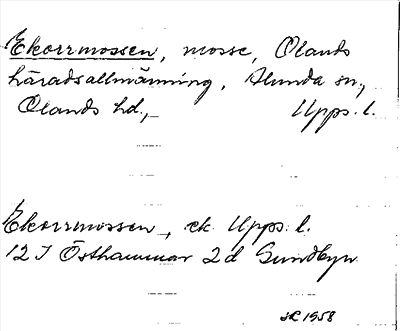 Ekorrmossen, mosse, Olands
häradsallmänning, Alunda sn,
Olands hd, Upps. l.
Ekorrmossen, ek Upps. l.
12 I Östhammar 2 d Sundbyn
1958